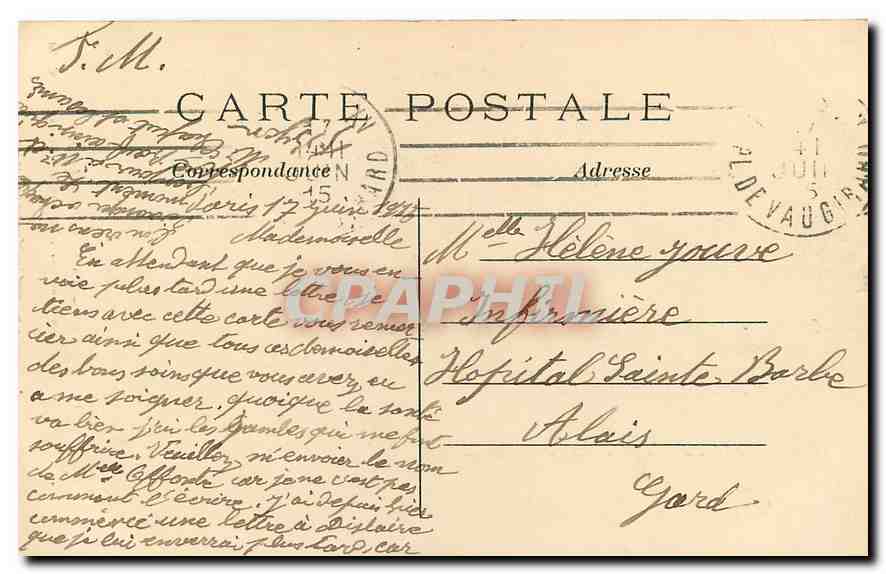 F. M.
CARTE POSTALE
Correspondance
Adresse
PL. DE VAUGIRARD
JUIN
15
Paris 17 juin 1915
Mademoiselle
En attendant que je vous en
voie plus tard une lettre je
tiens avec cette carte vous remer
cier ainsi que tous ces demoiselles
des bons soins que vous avez eu
a me soigner. quoique la santé
va bien j'ai les jambes qui me font
souffrire. Veuillez m'envoier le nom
de Melle car je ne sest pas
comment l'écrire. J'ai depuis hier
commencé une lettre à
que je lui enverrai plus tard, car
Melle Hèlène Jouve
Infirmière
Hopital Sainte Barbe
Alais
Gard
CPAPHIL